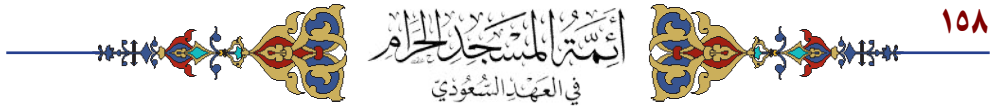 ١٥٨
أَئِمَّةُ المَسْجِدِ الحَرَامِ
فِي العَهْدِ السُّعُودِيّ